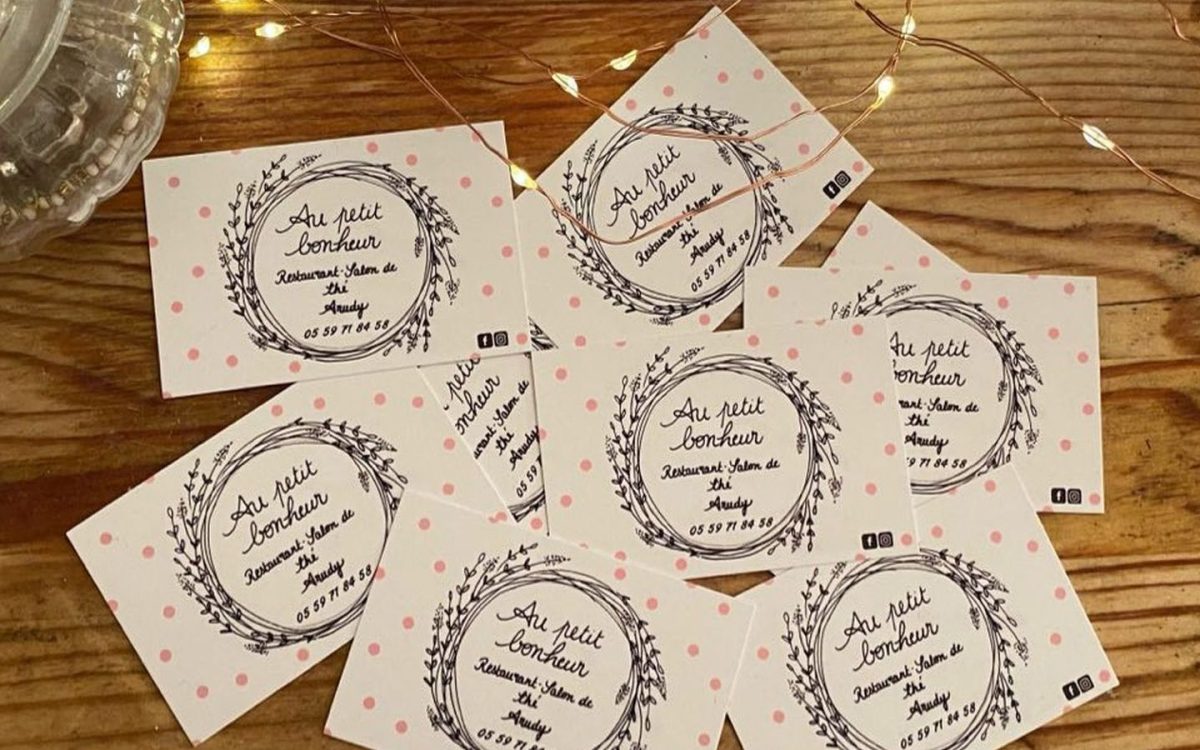 Au petit
bonheur
Restaurant-Salon de
thé
Arudy
05 59 71 84 58
Au petit
bonheur
Restaurant-Salon de
thé
Arudy
05 59 71 84 58
Au petit
bonheur
-Salon de
Arudy
59 71 84 58
petit
bonheur
thé
Arudy
05 59
Au petit
bonheur
Restaurant-Salon de
thé
Arudy
05 59 71 84 58
Au petit
bonheur
Restaurant-Salon de
thé
Arudy
05 59 71 84 58
Au petit
bonheur
Restaurant-Salon de
thé
Arudy
05 59 71 84 58
Au petit
bonheur
Restaurant-Salon de
thé
Arudy
05 59 71 84 58